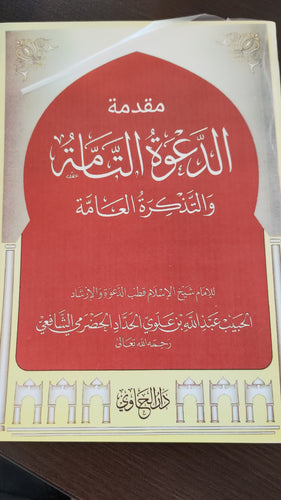 مقدمة
الدَّعْوَةُ التَّامَّةُ
وَالتَّذْكِرَةُ العَامَّة
للإمام شيخ الإسلام قطب الدعوة والإرشاد
الحبيب عبد الله بن علوي الحداد الحضرمي الشافعي
رحمه الله تعالى
دار الحاوي